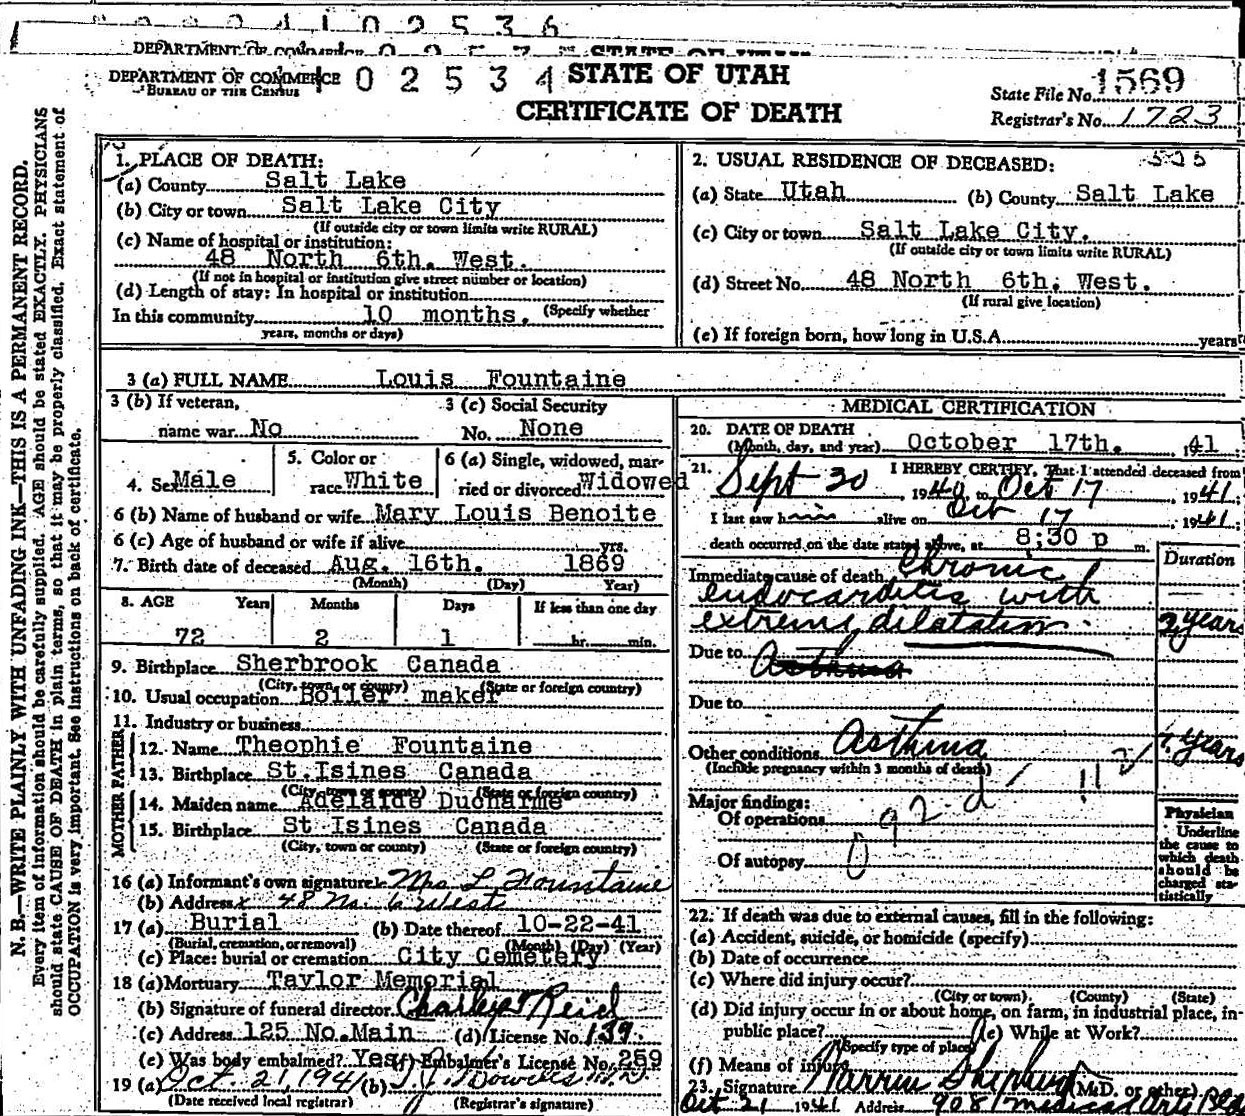 0 2 5 3 6
DEPARTMENT OF COMMERCE 0 2 5 3 STATE OF UTAH
DEPARTMENT OF COMMERCE 1 0 2 5 3 4 STATE OF UTAH
BUREAU OF THE CENSUS
CERTIFICATE OF DEATH
State File No. 1569
Registrar's No. 1723
N. B.—WRITE PLAINLY WITH UNFADING INK—THIS IS A PERMANENT RECORD.
Every item of information should be carefully supplied. AGE should be stated EXACTLY. PHYSICIANS
should state CAUSE OF DEATH in plain terms, so that it may be properly classified. Exact statement of
OCCUPATION is very important. See instructions on back of certificate.
1. PLACE OF DEATH:
(a) County Salt Lake
(b) City or town Salt Lake City
(If outside city or town limits write RURAL)
(c) Name of hospital or institution:
48 North 6th. West.
(If not in hospital or institution give street number or location)
(d) Length of stay: In hospital or institution
In this community 10 months. (Specify whether
years, months or days)
2. USUAL RESIDENCE OF DECEASED:
(a) State Utah (b) County Salt Lake
(c) City or town Salt Lake City.
(If outside city or town limits write RURAL)
(d) Street No. 48 North 6th. West.
(If rural give location)
(e) If foreign born, how long in U.S.A. years
3 (a) FULL NAME Louis Fountaine
3 (b) If veteran, 3 (c) Social Security
name war No No. None
4. Sex Male 5. Color or race White 6 (a) Single, widowed, married or divorced Widowed
6 (b) Name of husband or wife Mary Louis Benoite
6 (c) Age of husband or wife if alive yrs.
7. Birth date of deceased Aug. 16th. 1869
(Month) (Day) Year)
8. AGE Years Months Days If less than one day
72 2 1 hr. min.
9. Birthplace Sherbrook Canada
(City, town, or county) (State or foreign country)
10. Usual occupation Boiler maker
11. Industry or business
FATHER
12. Name Theophie Fountaine
13. Birthplace St. Isines Canada
(City, town or county) (State or foreign country)
MOTHER
14. Maiden name Adelaide Ducharme
15. Birthplace St Isines Canada
(City, town or county) (State or foreign country)
16 (a) Informant's own signature Mrs L Fountaine
(b) Address x 48 No. 6 West
17 (a) Burial (b) Date thereof 10-22-41
(Burial, cremation, or removal) (Month) (Day) (Year)
(c) Place: burial or cremation City Cemetery
18 (a) Mortuary Taylor Memorial
(b) Signature of funeral director Charles Reid
(c) Address 125 No. Main (d) License No. 139.
(e) Was body embalmed? Yes (f) Embalmer's License No. 259
19 (a) Oct. 21, 1941 (b)
(Date received local registrar) (Registrar's signature)
MEDICAL CERTIFICATION
20. DATE OF DEATH
(Month, day, and year) October 17th. 41
21. I HEREBY CERTIFY, That I attended deceased from
Sept 20, 1940, to Oct 17, 1941.
I last saw him alive on Oct 17, 1941.
death occurred on the date stated above, at 8:30 p m.
Duration
Immediate cause of death Chronic
endocarditis with
extreme dilatation. 2 years
Due to Asthma
Due to
Other conditions Asthma years
(Include pregnancy within 3 months of death)
Major findings:
Of operations
092-d
Of autopsy
Physician
Underline
the cause to
which death
should be
charged sta-
tistically
22. If death was due to external causes, fill in the following:
(a) Accident, suicide, or homicide (specify)
(b) Date of occurrence
(c) Where did injury occur?
(City or town) (County) (State)
(d) Did injury occur in or about home, on farm, in industrial place, in-
public place? (e) While at Work?
(Specify type of place)
(f) Means of injury
23. Signature Warren Shepherd (M.D. or other)
Oct 21 1941 Address 908 Medical Art Bld